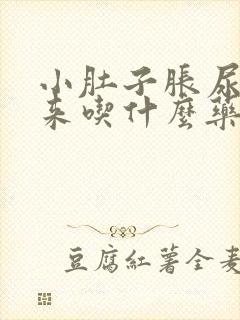 小肚子脹尿
來喫什麼藥
豆腐紅薯全麦